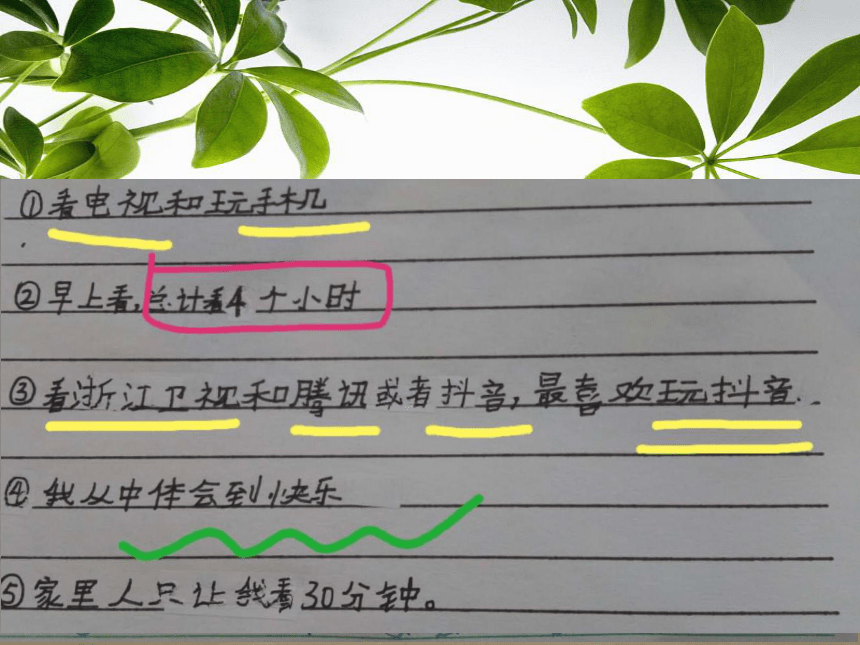 ①看电视和玩手机
②早上看,总计看4个小时
③看浙江卫视和腾讯或者抖音,最喜欢玩抖音.
④我从中体会到快乐
⑤家里人只让我看30分钟。